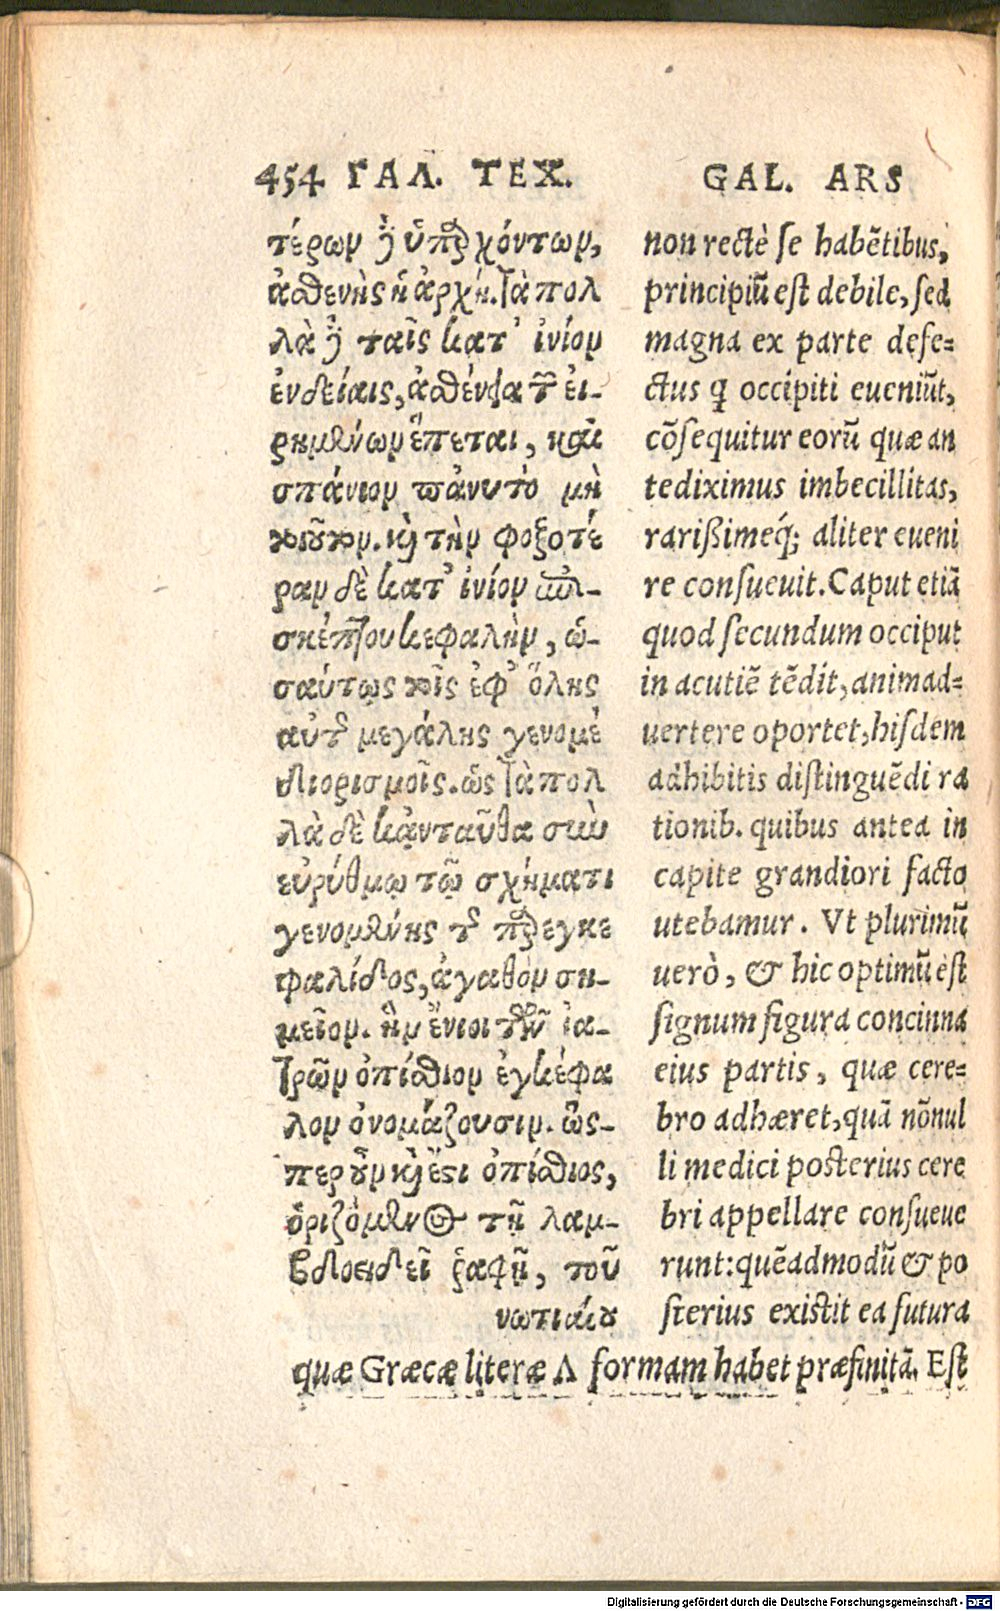 454 ΓΑΛ. ΤΕΧ.
τέρων δ' ὑπαρχόντων,
ἀσθενὴς ἡ ἀρχή. τὰ πολ
λὰ δ' ταῖς κατ' ἰνίον
ἐνδείαις, ἀσθένεια τῶν εἰ-
ρημένων ἕπεται, καὶ
σπάνιον πάνυ τὸ μὴ
τοιοῦτον. καὶ τὴν φοξοτέ
ραν δὲ κατ' ἰνίον ἐπι-
σκέπτου κεφαλὴν, ὡ-
σαύτως τοῖς ἐφ' ὅλης
αὐτῆς μεγάλης γενομέ
διορισμοῖς. ὡς τὰ πολ
λὰ δὲ κἀνταῦθα σὺν
εὐρύθμῳ τῷ σχήματι
γενομένης τῆς παρεγκε
φαλίδος, ἀγαθὸν ση-
μεῖον. ἣν ἔνιοι τῶν ἰα-
τρῶν ὀπίσθιον ἐγκέφα
λον ὀνομάζουσιν. ὥσ-
περ οὖν καὶ ἔστι ὀπίσθιος,
ὁριζόμενος τῇ λαμ-
βδοειδεῖ ῥαφῇ, τοῦ
νωτιαίου
GAL. ARS
non rectè se habẽtibus,
principiũ est debile, sed
magna ex parte defe=
ctus q̃ occipiti eueniũt,
cõsequitur eorũ quæ an
tediximus imbecillitas,
rarißimeq́; aliter eueni
re consueuit. Caput etiã
quod secundum occiput
in acutiẽ tẽdit, animad=
uertere oportet, hisdem
adhibitis distinguẽdi ra
tionib. quibus antea in
capite grandiori facto
utebamur. Vt plurimũ
uerò, & hic optimũ est
signum figura concinna
eius partis, quæ cere=
bro adhæret, quã nõnul
li medici posterius cere
bri appellare consueue
runt: quẽadmodũ & po
sterius existit ea sutura
quæ Græcæ literæ Λ formam habet præfinitã. Est
Digitalisierung gefördert durch die Deutsche Forschungsgemeinschaft - DFG